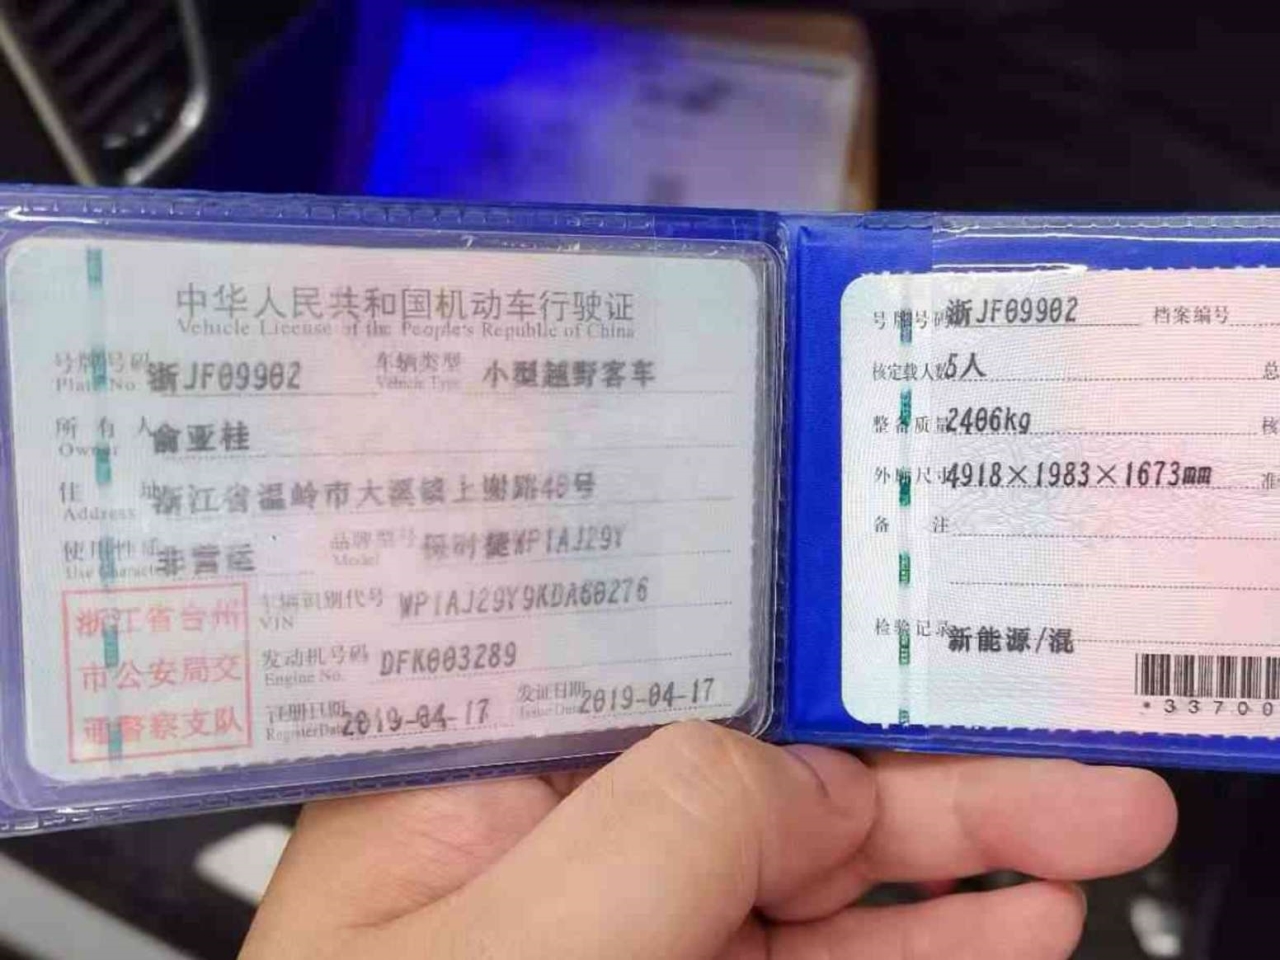 中华人民共和国机动车行驶证
Vehicle License of the People's Republic of China
号牌号码 浙JF09902 车辆类型 小型越野客车
Plate No. Vehicle Type
所有人 俞亚桂
Owner
住址 浙江省温岭市大溪镇上谢路48号
Address
使用性质 非营运 品牌型号 保时捷WP1AJ29Y
Use Character Model
车辆识别代号 WP1AJ29Y9KDA60276
VIN
发动机号码 DFK003289
Engine No.
注册日期 2019-04-17 发证日期 2019-04-17
Register Date Issue Date
浙江省台州
市公安局交
通警察支队
号牌号码 浙JF09902 档案编号
核定载人数 5人 总
整备质量 2406kg 核
外廓尺寸 4918×1983×1673mm 准
备注
检验记录 新能源/混
*33700